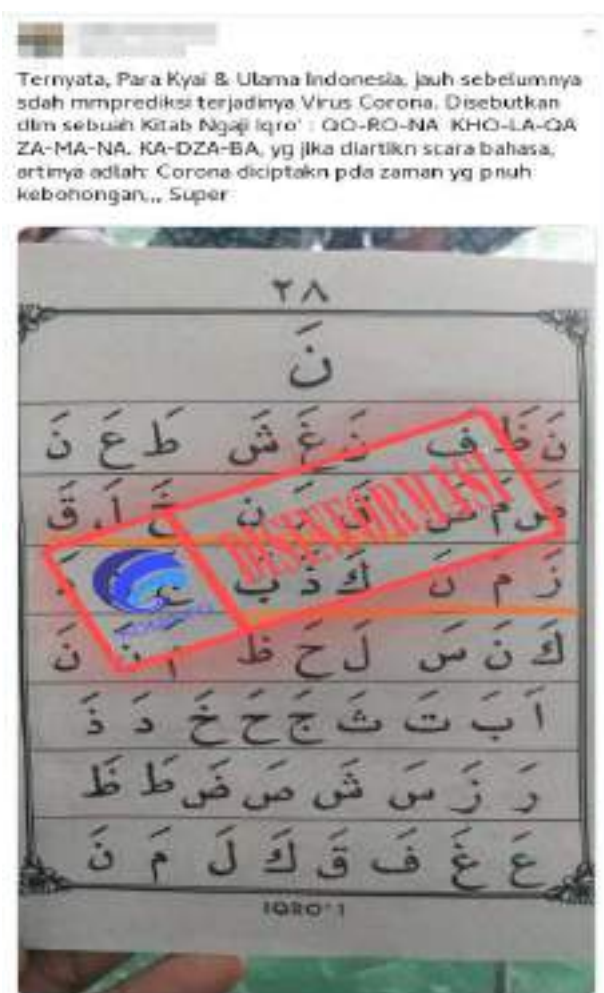 Ternyata, Para Kyai & Ulama Indonesia, jauh sebelumnya
sdah mmprediksi terjadinya Virus Corona. Disebutkan
dlm sebuah Kitab Ngaji Iqro' : QO-RO-NA KHO-LA-QA
ZA-MA-NA. KA-DZA-BA, yg jika diartikn scara bahasa,
artinya adlah: Corona diciptakn pda zaman yg pnuh
kebohongan,,, Super
٢٨
نَ
نَ ظَ فَ نَ غَ شَ طَ عَ نَ
خَ لَ قَ
DISINFORMASI
زَ مَ نَ كَ ذَ بَ
كَ نَ سَ لَ حَ ظَ
اَ بَ تَ ثَ جَ حَ خَ دَ ذَ
رَ زَ سَ شَ صَ ضَ طَ ظَ
عَ غَ فَ قَ كَ لَ مَ نَ
IQRO' 1